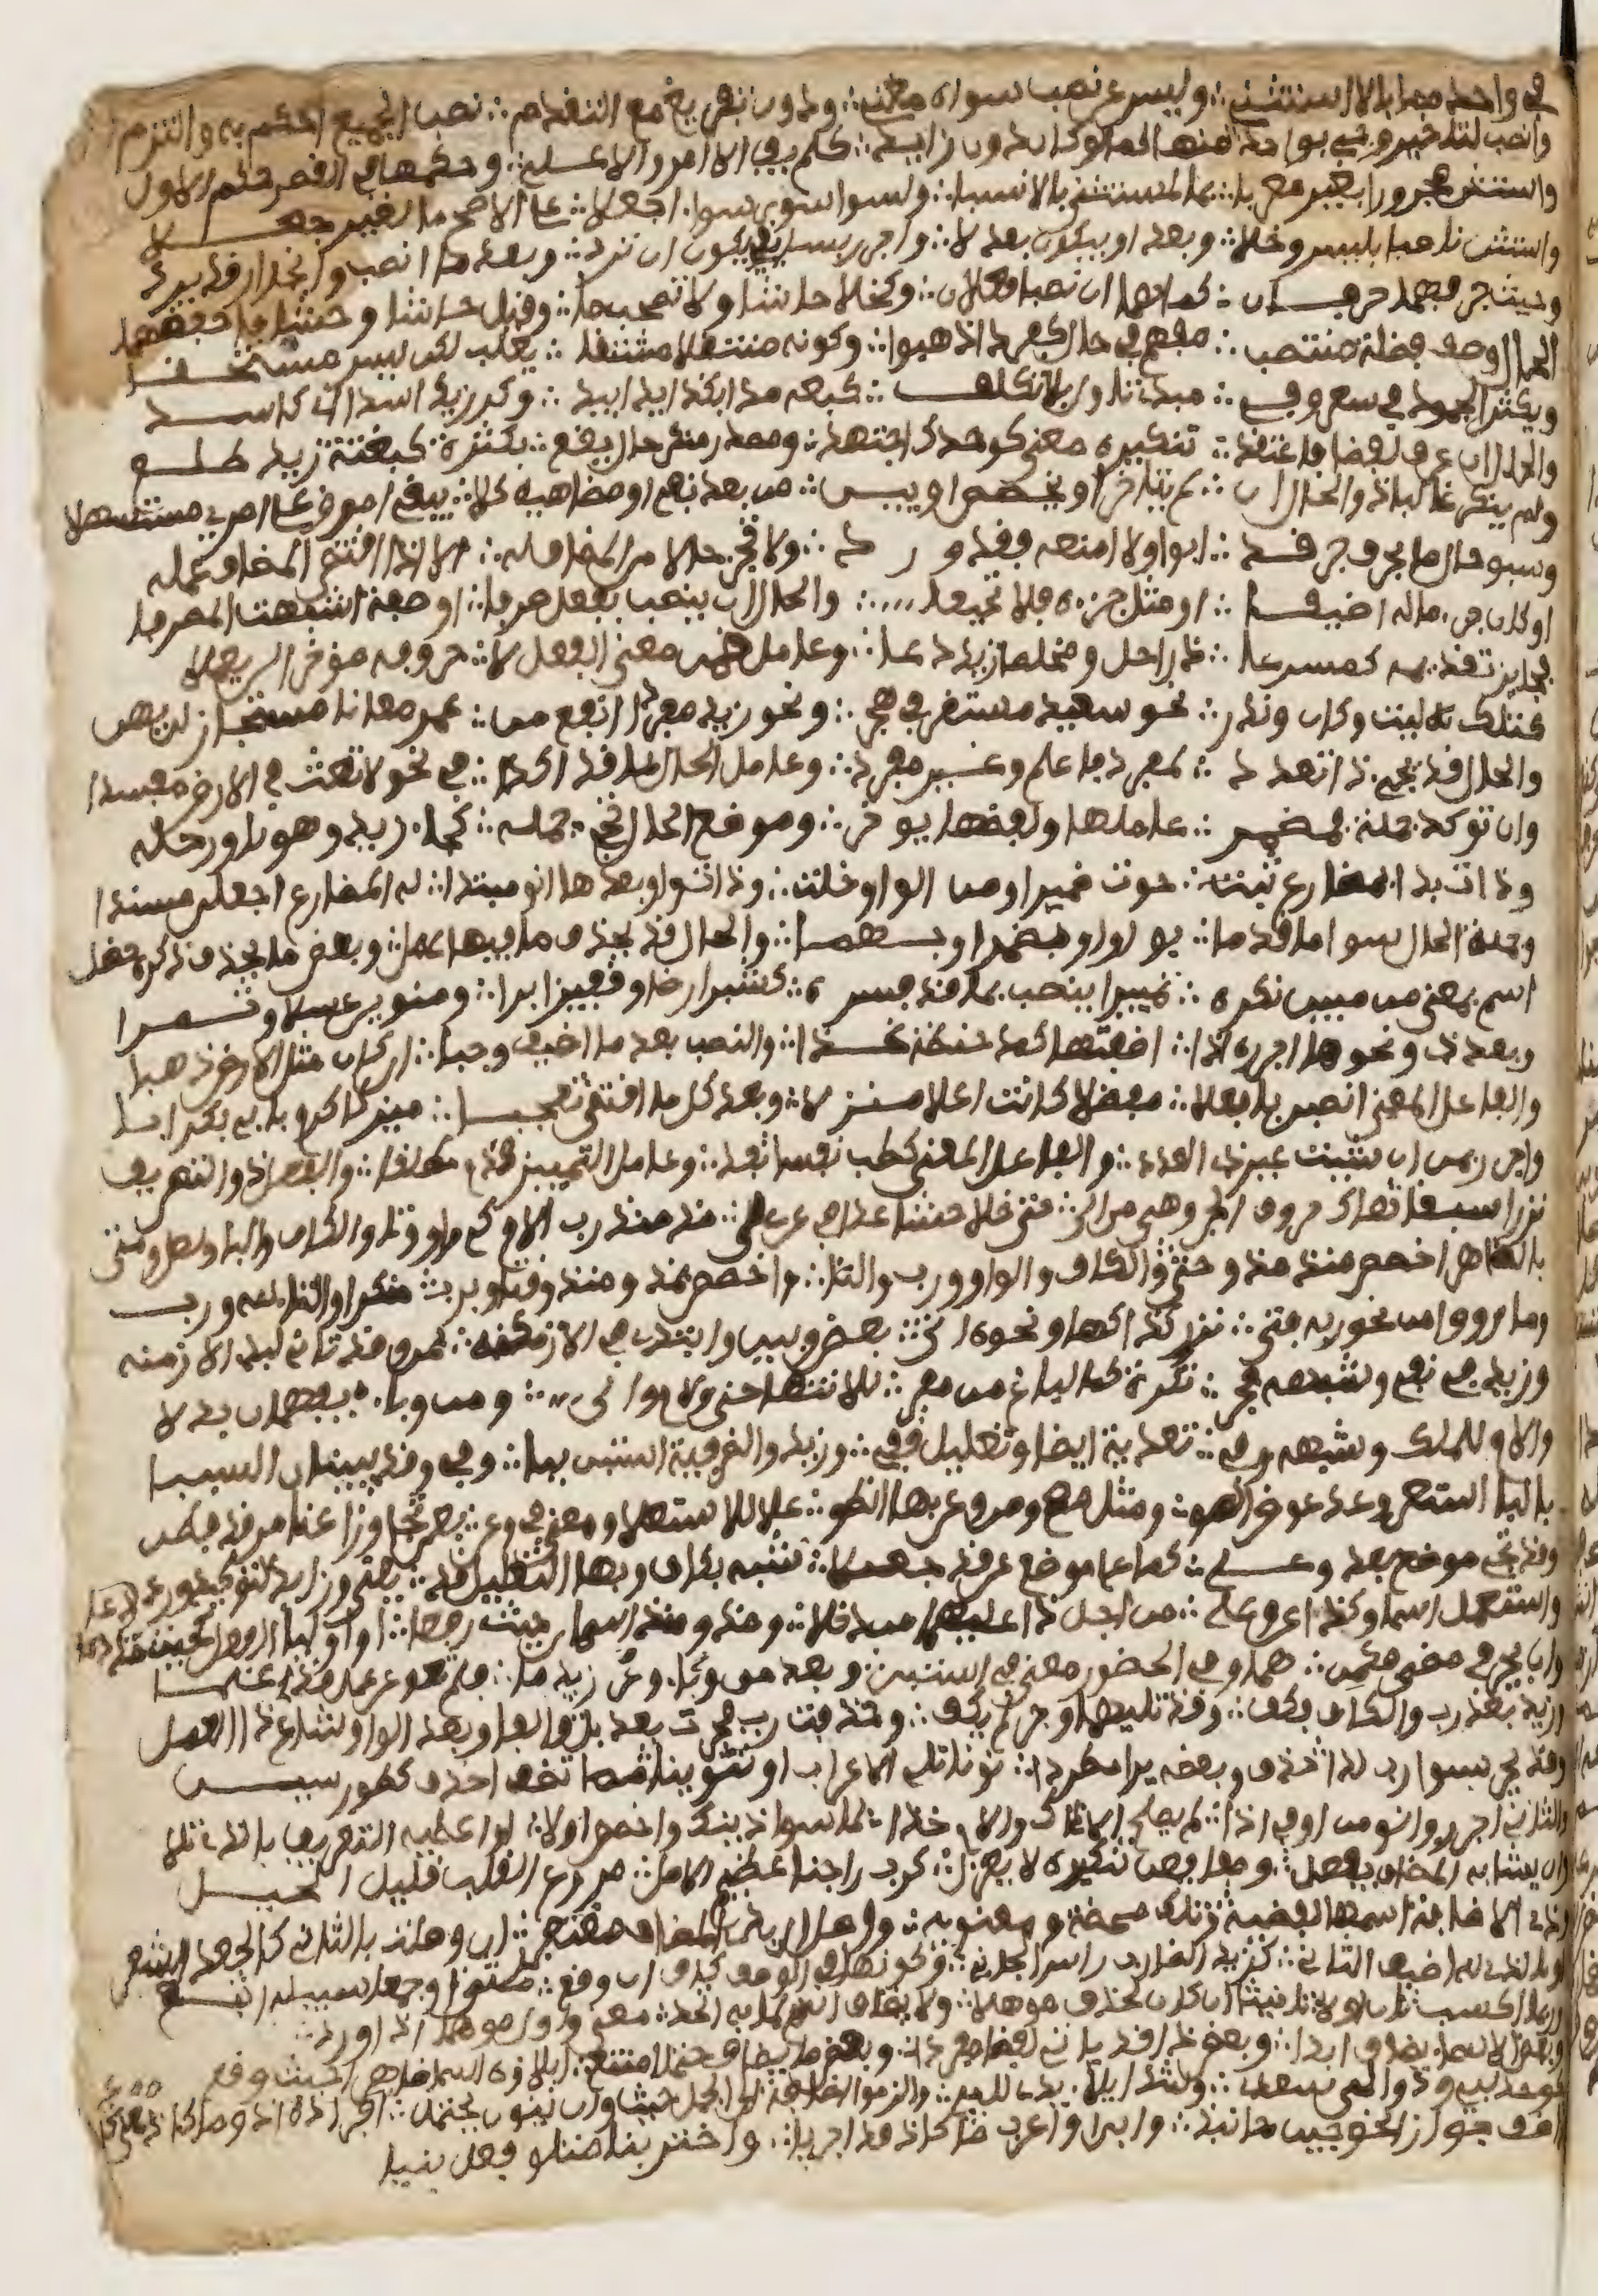 في واحد مما بالا استثني ∴ وليس عن نصب سواه مغني ∴ ودون تفريغ مع التقدم ∴ نصب الجميع احكم به والتزم
وانصب لتاخير وجي بواحد ∴ منها كما لو كان دون زايد ∴ كلم يفوا الا امرو الا علي ∴ وحكمها في القصد حكم الاول
واستثن مجرورا بغير معربا ∴ بما لمستثنى بالا نسبا ∴ ولسوى سوى سواء اجعلا ∴ على الاصح ما لغير جعلا
واستثن ناصبا بليس وخلا ∴ وبعدا وبيكون بعد لا ∴ واجرر بسابقي يكون ان ترد ∴ وبعد ما انصب وانجرار قد يرد
وحيث جرا فهما حرفان ∴ كما هما ان نصبا فعلان ∴ وكخلا حاشا ولا تصحب ما ∴ وقيل حاش وحشا فاحفظهما
الحال وصف فضلة منتصب ∴ مفهم في حال كفردا اذهب ∴ وكونه منتقلا مشتقا ∴ يغلب لكن ليس مستحقا
ويكثر الجمود في سعر وفي ∴ مبدي تاول بلا تكلف ∴ كبعه مدا بكذا يدا بيد ∴ وكر زيد اسدا اي كاسد
والحال ان عرف لفظا فاعتقد ∴ تنكيره معنى كوحدك اجتهد ∴ ومصدر منكر حالا يقع ∴ بكثرة كبغتة زيد طلع
ولم ينكر غالبا ذو الحال ان ∴ لم يتاخر او يخصص او يبن ∴ من بعد نفي او مضاهيه كلا ∴ يبغ امرو على امري مستسهلا
وسبق حال ما بحرف جر قد ∴ ابوا ولا امنعه فقد ورد ∴ ولا تجز حالا من المضاف له ∴ الا اذا اقتضى المضاف عمله
او كان جزء ما له اضيفا ∴ او مثل جزءه فلا تحيفا ∴ والحال ان ينصب بفعل صرفا ∴ او صفة اشبهت المصرفا
فجايز تقديمه كمسرعا ∴ ذا راحل ومخلصا زيد دعا ∴ وعامل ضمن معنى الفعل لا ∴ حروفه موخرا لن يعملا
كتلك ليت وكان وندر ∴ نحو سعيد مستقرا في هجر ∴ ونحو زيد مفردا انفع من ∴ عمر معانا مستجاز لن يهن
والحال قد يجي ذا تعدد ∴ لمفرد فاعلم وغير مفرد ∴ وعامل الحال بها قد اكدا ∴ في نحو لا تعث في الارض مفسدا
وان توكد جملة فمضمر ∴ عاملها ولفظها يوخر ∴ وموضع الحال تجي جمله ∴ كجاء زيد وهو ناو رحله
وذات بدء بمضارع ثبت ∴ حوت ضميرا ومن الواو خلت ∴ وذات واو بعدها انو مبتدا ∴ له المضارع اجعلن مسندا
وجملة الحال سوى ما قدما ∴ بواو او بمضمر او بهما ∴ والحال قد يحذف ما فيها عمل ∴ وبعض ما يحذف ذكره حظل
اسم بمعنى من مبين نكره ∴ تمييزا ينصب بما قد فسره ∴ كشبر ارضا وقفيز برا ∴ ومنوين عسلا وتمرا
وبعد ذي ونحوها اجرره اذا ∴ اضفتها كمد حنطة غذا ∴ والنصب بعد ما اضيف وجبا ∴ ان كان مثل ملء الارض ذهبا
والفاعل المعنى انصبن بافعلا ∴ مفضلا كانت اعلا منزلا ∴ وبعد كل ما اقتضى تعجبا ∴ ميز كاكرم بابي بكر ابا
واجرر بمن ان شيت غير ذي العدد ∴ والفاعل المعنى كطب نفسا تفد ∴ وعامل التمييز قدم مطلقا ∴ والفعل ذو التصريف
نزرا سبقا هاك حروف الجر وهي من الى ∴ حتى خلا حاشا عدا في عن على ∴ مذ منذ رب اللام كي واو وتا والكاف والبا ولعل ومتى
بالظاهر اخصص منذ مذ وحتى والكاف والواو ورب والتا ∴ واخصص بمذ ومنذ وقتا وبرب منكرا والتاء لله ورب
وما رووا من نحو ربه فتى ∴ نزر كذا كها ونحوه اتى ∴ بعض وبين وابتدي في الازمنه ∴ بمن وقد تاتي لبدء الازمنه
وزيد في نفي وشبهه فجر ∴ نكرة كما لباغ من مفر ∴ للانتها حتى ولام والى ∴ ومن وباء يفهمان بدلا
واللام للملك وشبهه وفي ∴ تعدية ايضا وتعليل قفي ∴ وزيد والظرفية استبن ببا ∴ وفي وقد يبينان السببا
بالبا استعن وعد عوض الصق ∴ ومثل مع ومن وعن بها انطق ∴ على للاستعلا ومعنى في وعن ∴ بعن تجاوزا عنا من قد فطن
وقد تجي موضع بعد وعلى ∴ كما على موضع عن قد جعلا ∴ شبه بكاف وبها التعليل قد ∴ يعنى وزايدا لتوكيد ورد
واستعمل اسما وكذا عن وعلى ∴ من اجل ذا عليهما من دخلا ∴ ومذ ومنذ اسمان حيث رفعا ∴ او اوليا الفعل كجيت مذ دعا
وان يجرا في مضي فكمن ∴ هما وفي الحضور معنى في استبن ∴ وبعد من وعن وباء زيد ما ∴ فلم تعق عن عمل قد علما
وزيد بعد رب والكاف فكف ∴ وقد تليهما وجر لم يكف ∴ وحذفت رب فجرت بعد بل والفا وبعد الواو شاع ذا العمل
وقد يجر بسوى رب لدى حذف وبعضه يرى مطردا ∴ نونا تلي الاعراب او تنوينا مما تضف احذف كطور سينا
والثاني اجرر وانو من او في اذا ∴ لم يصلح الا ذاك واللام خذا ∴ لما سوى ذينك واخصص اولا ∴ او اعطه التعريف بالذي تلا
وان يشابه المضاف يفعل ∴ وصفا فعن تنكيره لا يعزل ∴ كرب راجينا عظيم الامل ∴ مروع القلب قليل الحيل
وذي الاضافة اسمها لفظيه وتلك محضة ومعنويه ∴ ووصل ال بذا المضاف مغتفر ∴ ان وصلت بالثاني كالجعد الشعر
او بالذي له اضيف الثاني ∴ كزيد الضارب راس الجاني ∴ وكونها في الوصف كاف ان وقع ∴ مثنى او جمعا سبيله اتبع
وربما اكسب ثان اولا ∴ تانيثا ان كان لحذف موهلا ∴ ولا يضاف اسم لما به اتحد ∴ معنى واول موهما اذا ورد
وبعض الاسماء يضاف ابدا ∴ وبعض ذا قد يات لفظا مفردا ∴ وبعض ما يضاف حتما امتنع ∴ ايلاوه اسما ظاهرا حيث وقع
كوحد لبي ودوالي سعدي ∴ وشذ ايلاء يدي للبي ∴ والزموا اضافة الى الجمل حيث واذ وان ينون يحتمل ∴ افراد اذ وما كاذ معنى كاذ
اضف جوازا نحو حين جا نبذ ∴ وابن او اعرب ما كاذ قد اجريا ∴ واختر بنا متلو فعل بنيا